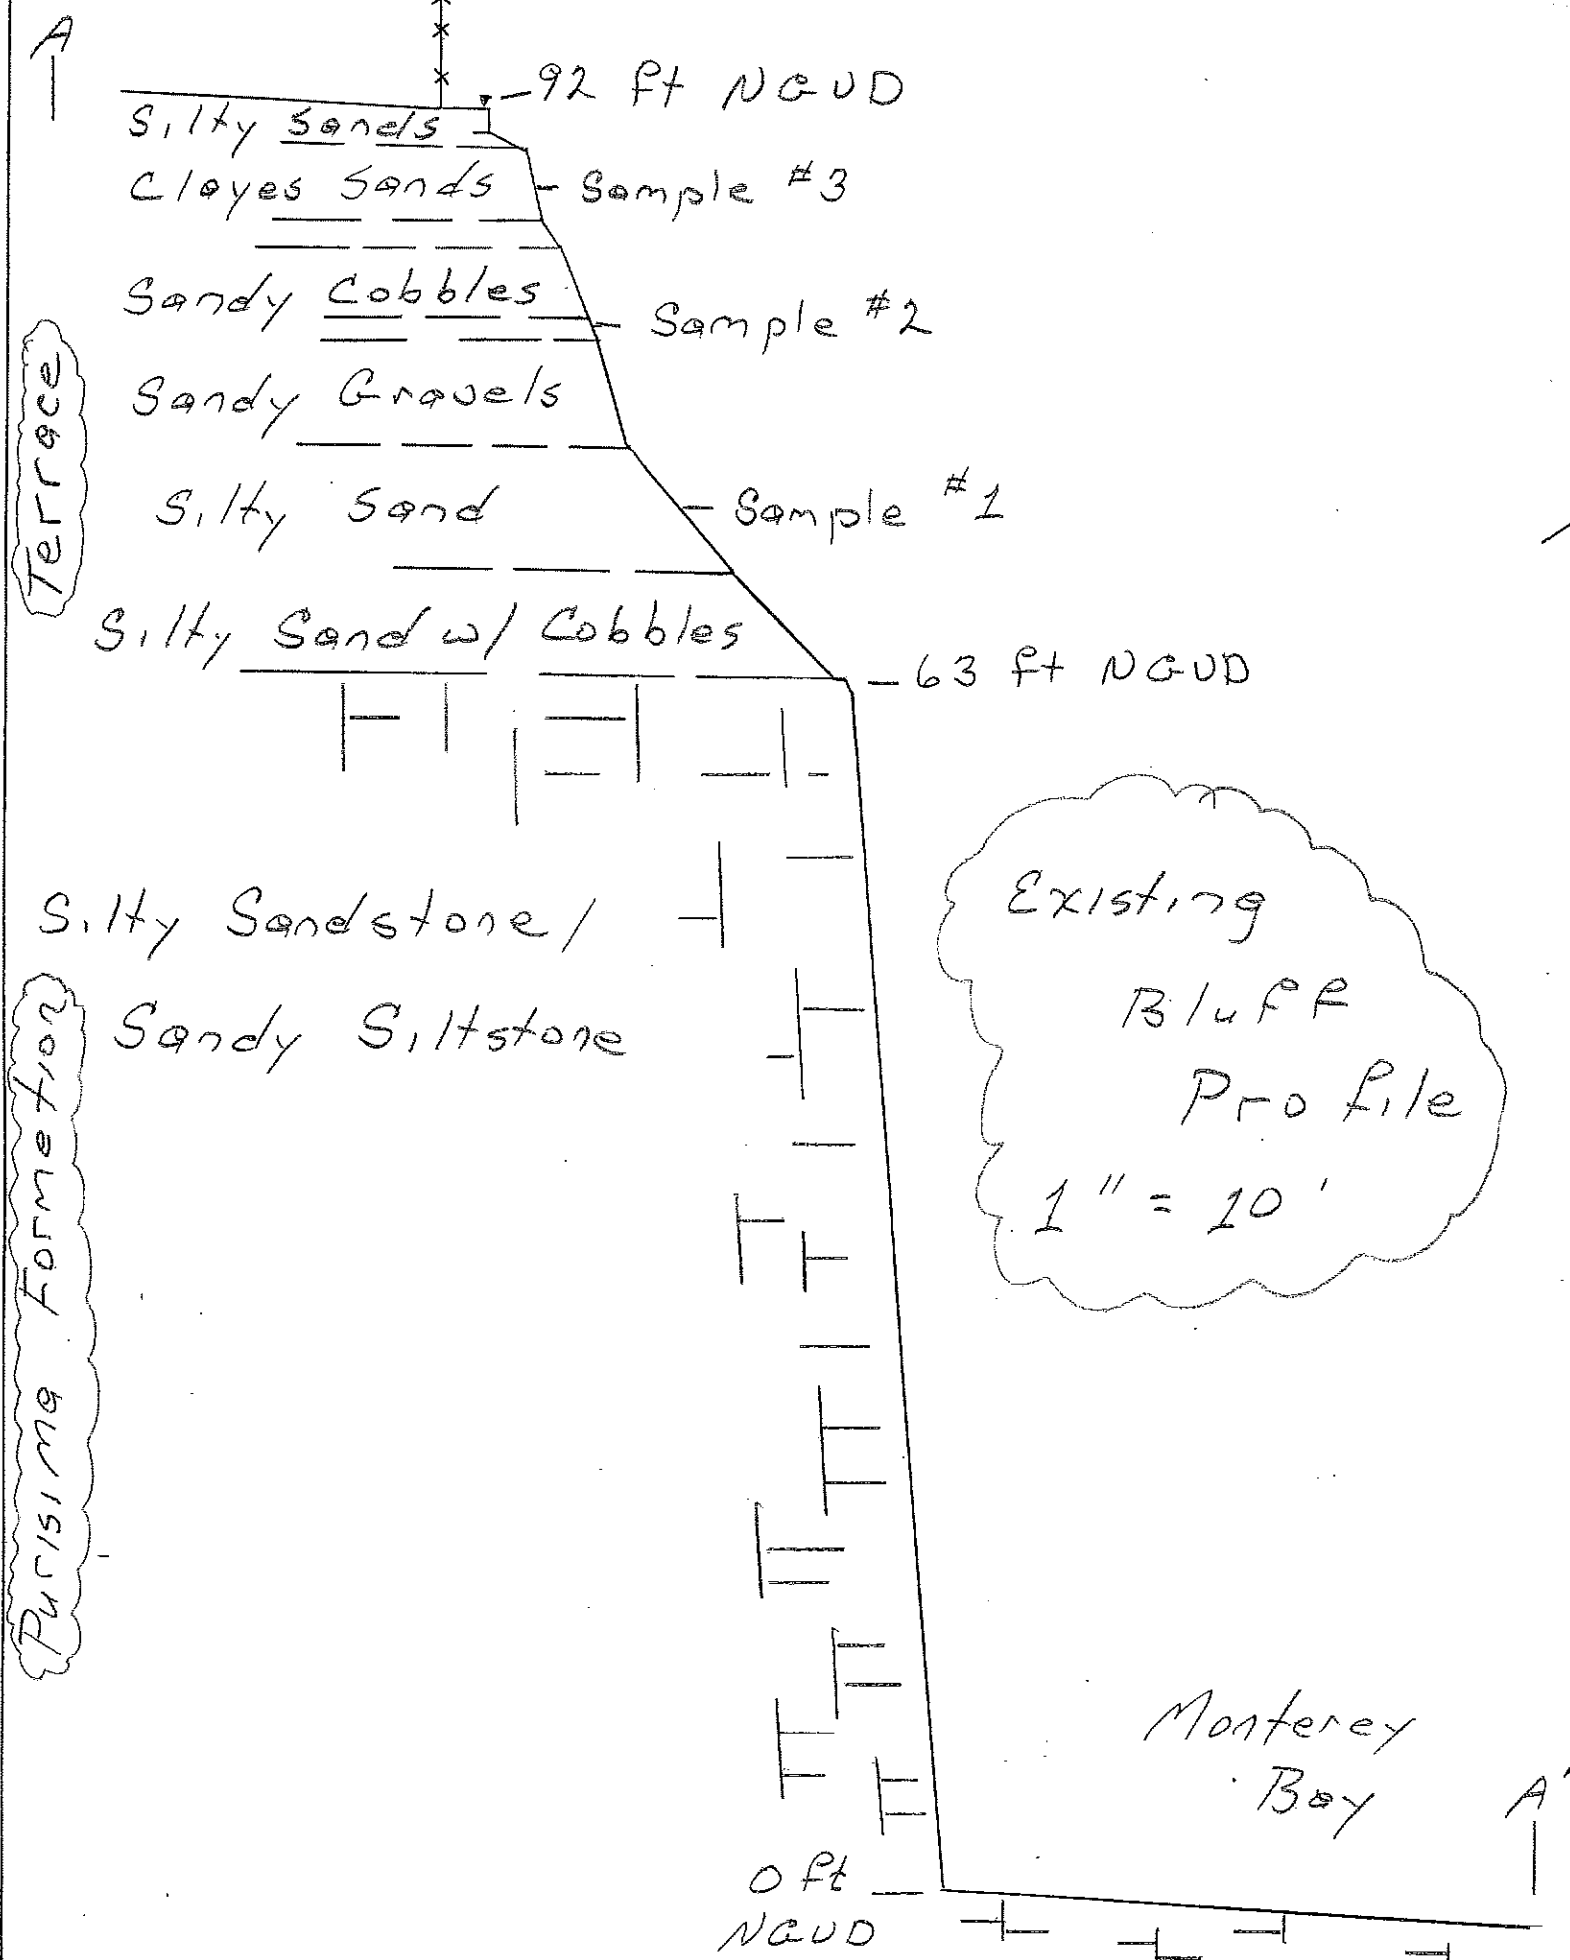 A
92 ft NGVD
Silty Sands
Clayes Sands
Sample #3
Sandy Cobbles
Sample #2
Sandy Gravels
Terrace
Silty Sand
Sample #1
Silty Sand w/ Cobbles
63 ft NGVD
Silty Sandstone/
Sandy Siltstone
Purisima Formation
Existing
Bluff
Profile
1" = 10'
Monterey
Bay
A'
0 ft
NGVD